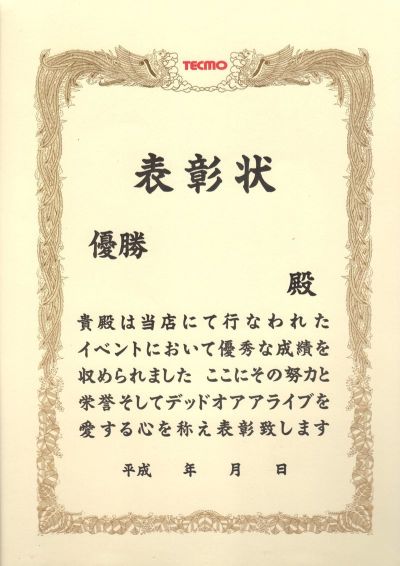 TECMO
表彰状
優勝
殿
貴殿は当店にて行なわれた
イベントにおいて優秀な成績を
収められました ここにその努力と
栄誉そしてデッドオアアライブを
愛する心を称え表彰致します
平成 年 月 日